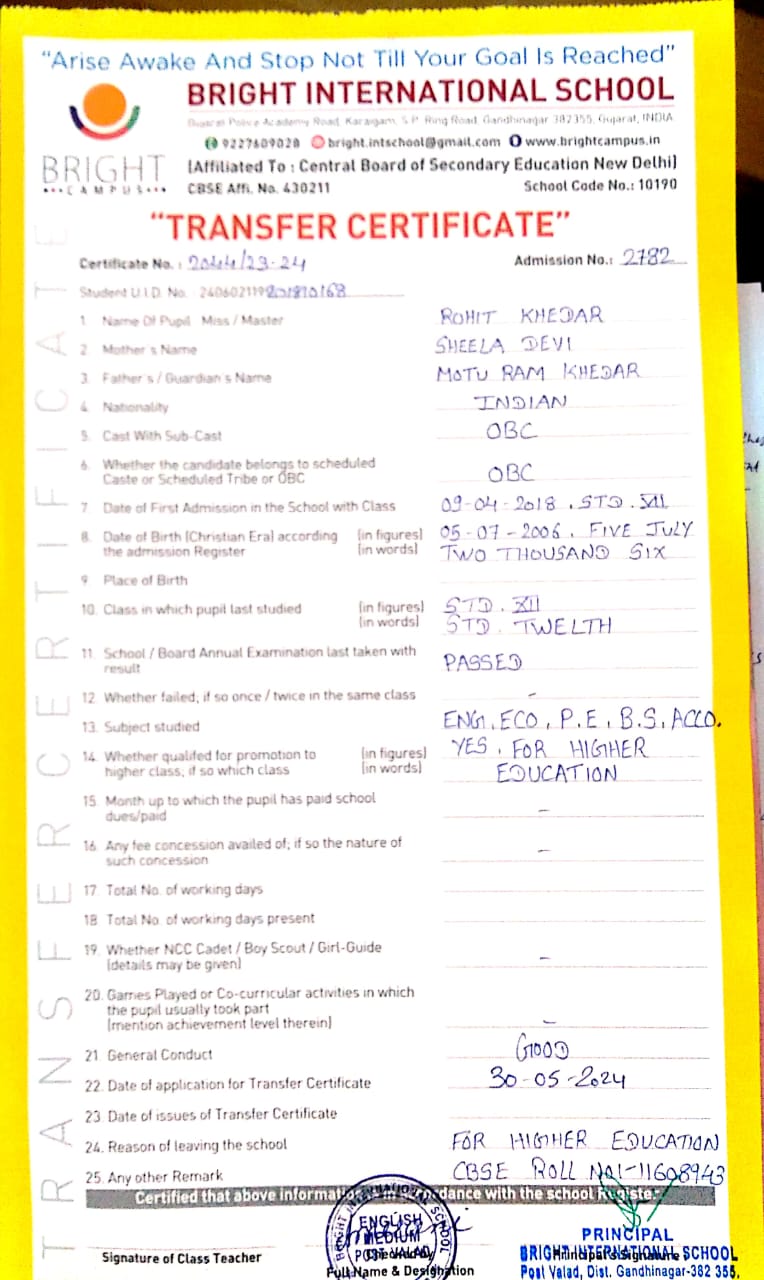 "Arise Awake And Stop Not Till Your Goal Is Reached"
BRIGHT INTERNATIONAL SCHOOL
Gujarat Police Academy Road, Karaigam, S.P. Ring Road, Gandhinagar 382355, Gujarat, INDIA
9227609028 bright.intschool@gmail.com www.brightcampus.in
BRIGHT
CAMPUS
(Affiliated To : Central Board of Secondary Education New Delhi)
CBSE Affi. No. 430211 School Code No.: 10190
"TRANSFER CERTIFICATE"
Certificate No. : 2044/23-24 Admission No.: 2782
Student U.I.D. No.
1. Name Of Pupil Miss / Master ROHIT KHEDAR
2. Mother's Name SHEELA DEVI
3. Father's / Guardian's Name MOTU RAM KHEDAR
4. Nationality INDIAN
5. Cast With Sub-Cast OBC
6. Whether the candidate belongs to scheduled
Caste or Scheduled Tribe or OBC OBC
7. Date of First Admission in the School with Class 09-04-2018, STD.
8. Date of Birth (Christian Era) according (in figures) 05-07-2006, FIVE JULY
the admission Register (in words) TWO THOUSAND SIX
9. Place of Birth
10. Class in which pupil last studied (in figures) STD. XII
(in words) STD. TWELTH
11. School / Board Annual Examination last taken with
result PASSED
12. Whether failed; if so once / twice in the same class -
13. Subject studied ENG, ECO, P.E, B.S, ACCO.
14. Whether qualifed for promotion to (in figures) YES, FOR HIGHER
higher class; if so which class (in words) EDUCATION
15. Month up to which the pupil has paid school
dues/paid -
16. Any fee concession availed of; if so the nature of
such concession -
17. Total No. of working days
18 Total No. of working days present
19. Whether NCC Cadet / Boy Scout / Girl-Guide
(details may be given) -
20. Games Played or Co-curricular activities in which
the pupil usually took part
(mention achievement level therein) -
21. General Conduct GOOD
22. Date of application for Transfer Certificate 30-05-2024
23. Date of issues of Transfer Certificate
24. Reason of leaving the school FOR HIGHER EDUCATION
25. Any other Remark CBSE ROLL NO:-11608943
Certified that above information in accordance with the school Register.
TRANSFER CERTIFICATE
BRIGHT INTERNATIONAL SCHOOL
ENGLISH
MEDIUM
POST-VALAD
Signature of Class Teacher
Checked by
Full Name & Designation
PRINCIPAL
Principal's Signature
BRIGHT INTERNATIONAL SCHOOL
Post Valad, Dist. Gandhinagar-382 355.